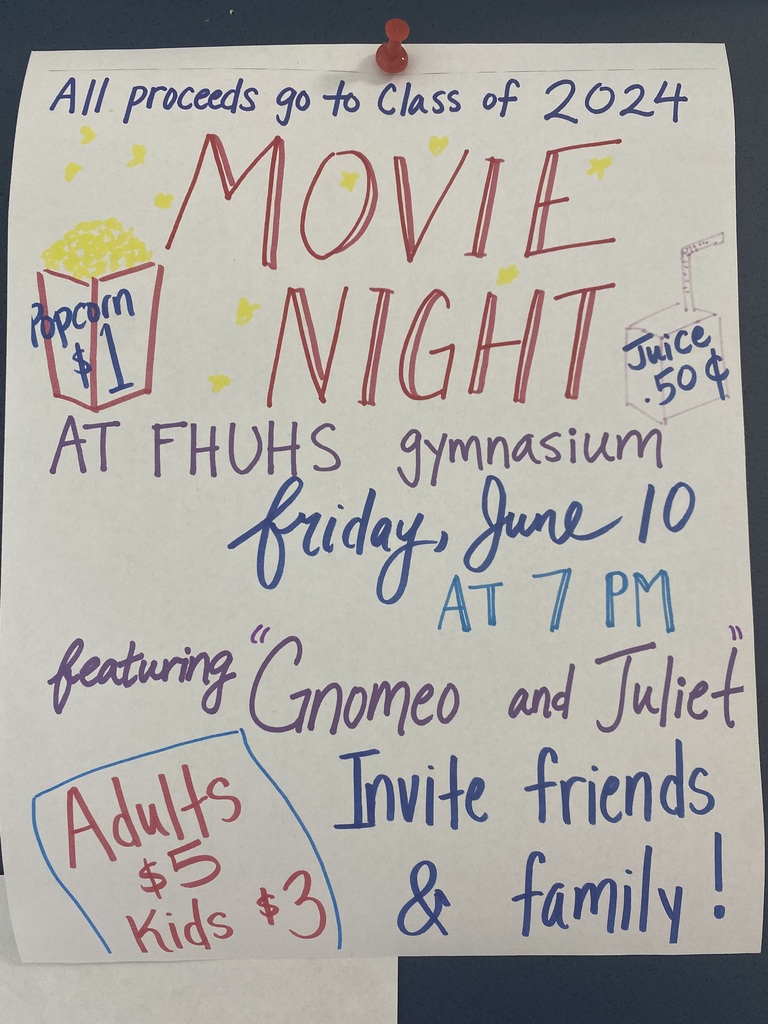 All proceeds go to Class of 2024
MOVIE
NIGHT
Popcorn
$1
Juice
.50¢
AT FHUHS gymnasium
friday, June 10
AT 7 PM
featuring "Gnomeo and Juliet"
Adults
$5
Kids $3
Invite friends
& family!